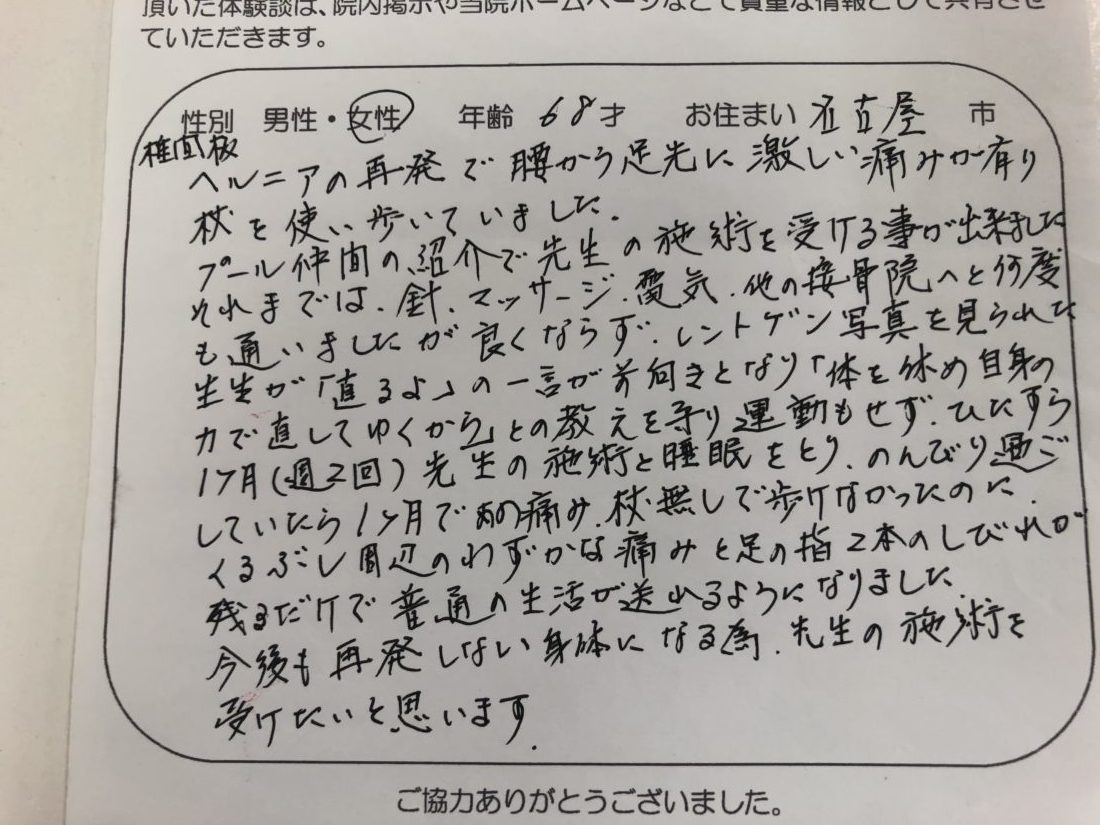 頂いた体験談は、院内掲示や当院ホームページなどで貴重な情報として共有させ
ていただきます。
性別 男性・女性 年齢 68才 お住まい 名古屋 市
椎間板
ヘルニアの再発で腰から足先に激しい痛みが有り
杖を使い歩いていました.
プール仲間の紹介で先生の施術を受ける事が出来ました
それまでは、針、マッサージ、電気、他の接骨院へと何度
も通いましたが良くならず、レントゲン写真を見られた
先生が「直るよ」の一言が前向きとなり「体を休め自身の
力で直してゆくから」との教えを守り運動もせず、ひたすら
1ヶ月(週2回)先生の施術と睡眠をとり、のんびり過ご
していたら1ヶ月であの痛み、杖無しで歩けなかったのに、
くるぶし周辺のわずかな痛みと足の指2本のしびれが
残るだけで普通の生活が送れるようになりました.
今後も再発しない身体になる為、先生の施術を
受けたいと思います.
ご協力ありがとうございました。